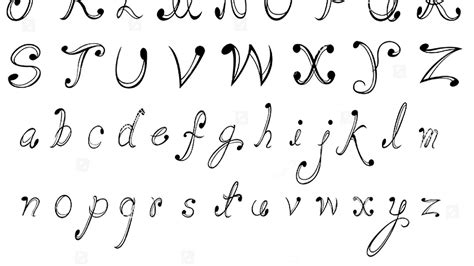 S T U V W X Y Z
a b c d e f g h i j k l m
n o p q r s t u v w x y z